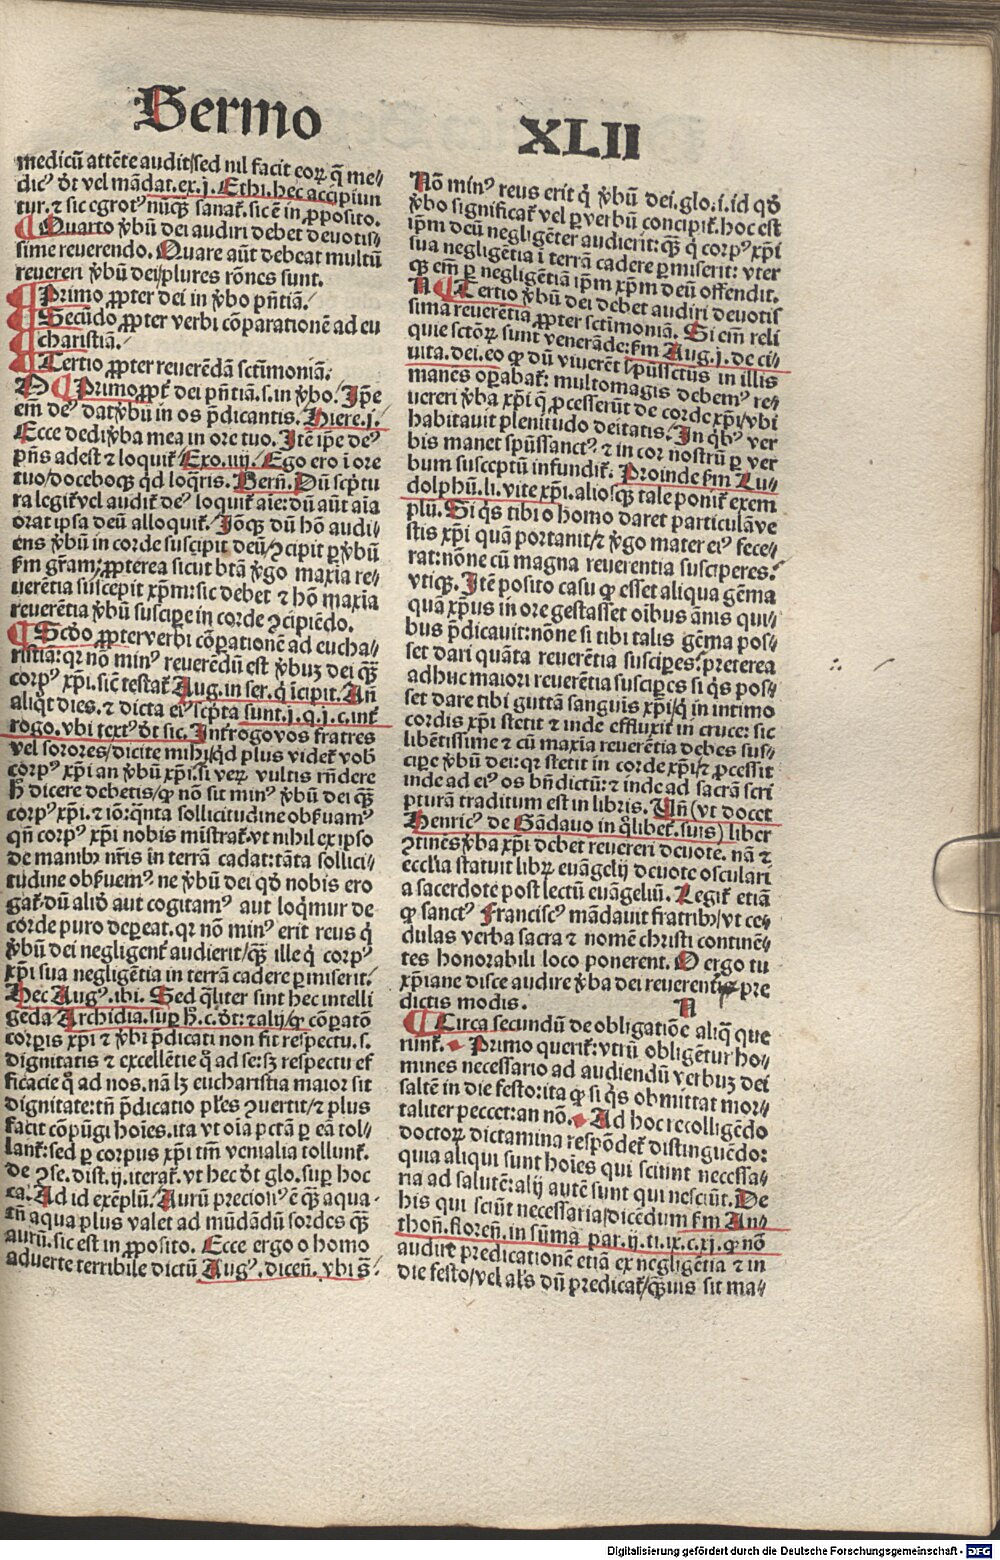 Sermo XLII
medicū attēte audit/sed nil facit eoꝝ q̄ me⸗
dicꝰ ðt vel mādat.ex.j.Ethi.hec accipiun
tur.⁊ sic egrotꝰ nūqꝫ sanat̄.sic ē in ꝓposito.
¶ Quarto v̄bū dei audiri debet deuotis⸗
sime reuerendo. Quare aūt debeat multū
reuereri v̄bū dei/plures rōnes sunt.
¶ Primo ꝓpter dei in v̄bo pn̄tiā.
¶ Secūdo ꝓpter verbi cōparationē ad eu
charistiā.
¶ Tertio ꝓpter reuerēdā sctīmoniā.
¶ Primo ꝓpt̄ dei pn̄tiā.s.in v̄bo. Ip̄e
em̄ deꝰ dat v̄bū in os p̄dicantis. Hiere.j.
Ecce dedi v̄ba mea in ore tuo. Itē ip̄e deꝰ
pn̄s adest ⁊ loquit̄/Exo.iiij. Ego ero ī ore
tuo/doceboqꝫ qd̄ loq̄ris. Bern̄. Dū scptu
ra legit̄ vel audit̄ deꝰ loquit̄ aīe:dū aūt aīa
orat ipsa deū alloquit̄. Iōqꝫ dū hō audi⸗
ens v̄bū in corde suscipit deū/ꝯcipit ꝑ v̄bū
ẜm gr̄am:ꝓpterea sicut btā v̄go maxīa re⸗
uerētia suscepit xp̄m:sic debet ⁊ hō maxīa
reuerētia v̄bū suscipe in corde ꝯcipiēdo.
¶ Scd̄o ꝓpter verbi cōꝑationē ad eucha⸗
ristiā:qꝛ nō minꝰ reuerēdū est v̄buꝫ dei qꝫ̄
corpꝰ xp̄i.sic̄ testat̄ Aug.in ser.q̄ īcipit. An̄
aliq̄t dies.⁊ dicta eiꝰ scp̄ta sunt.j.q.j.c.int̄
rogo.vbi textꝰ ðt sic. Int̄rogo vos fratres
vel sorores/dicite mihi/qd̄ plus videt̄ vob̄
corpꝰ xp̄i an v̄bū xp̄i.si veꝝ vultis rn̄dere
h̄ dicere debetis/ꝙ nō sit minꝰ v̄bū dei qꝫ̄
corpꝰ xp̄i.⁊ iō:qn̄ta sollicitudine obẜuamꝰ
qn̄ corpꝰ xp̄i nobis mīstrat̄.vt nihil ex ipso
de manibꝫ nr̄is in terrā cadat:tāta sollici⸗
tudine obẜuemꝰ ne v̄bū dei qd̄ nobis ero
gat̄.dū aliō aut cogitamꝰ aut loq̄mur de
corde puro deꝑeat.qꝛ nō minꝰ erit reus q̄
v̄bū dei negligent̄ audierit/qꝫ̄ ille q̄ corpꝰ
xp̄i sua negligētia in terrā cadere ꝑmiserit.
Hec Augꝰ.ibi. Sed q̄liter sint hec intelli
gēda Archidia.suꝑ h̄.c.ðt:⁊ alij/ꝙ cōꝑatō
corꝑis xp̄i ⁊ v̄bi p̄dicati non fit respectu.s.
dignitatis ⁊ excellētie q̄ ad se:sꝫ respectu ef
ficacie q̄ ad nos.nā lꝫ eucharistia maior sit
dignitate:tn̄ p̄dicatio pl̄es ꝯuertit/⁊ plus
facit cōpūgi hoīes.ita vt oīa pctā ꝑ eā tol⸗
lant̄:sed ꝑ corpus xp̄i tm̄ venialia tollunt̄.
de ꝯse.dist.ij.iterat̄.vt hec ðt glo.suꝑ hoc
ca. Ad id exēplū. Aurū preciosiꝰ ē qꝫ̄ aqua.
tn̄ aqua plus valet ad mūdādū sordes qꝫ̄
aurū.sic est in ꝓposito. Ecce ergo o homo
aduerte terribile dictū Augꝰ.dicen̄.vbi s̄.
Nō minꝰ reus erit q̄ v̄bū dei.glo.i.id qd̄
v̄bo significat̄ vel ꝑ verbū concipit̄.hoc est
ip̄m deū negligēter audierit:qꝫ̄ q̄ corpꝰ xp̄i
sua negligētia ī terrā cadere ꝑmiserit: vter
qꝫ em̄ ꝑ negligētiā ip̄m xp̄m deū offendit.
N ¶ Tertio v̄bū dei debet audiri deuotis
sima reuerētia ꝓpter sctīmoniā. Si em̄ reli
quie sctōꝝ sunt venerāde:ẜm Aug.j.de ci⸗
uita.dei.eo ꝙ dū viuerēt sp̄ussctūs in illis
manēs oꝑabat̄: multomagis debemꝰ re⸗
uereri v̄ba xp̄i q̄ ꝓcesserūt de corde xp̄i/vbi
habitauit plenitudo deitatis. In qb̄ꝰ ver
bis manet sp̄ussanctꝰ ⁊ in cor nostrū ꝑ ver
bum susceptū infundit̄. Proinde ẜm Lu⸗
dolphū.li.vite xp̄i.aliosqꝫ tale ponit̄ exem
plū. Si q̄s tibi o homo daret particulā ve
stis xp̄i quā portauit/⁊ v̄go mater eiꝰ fece⸗
rat:nōne cū magna reuerentia susciperes?
vtiqꝫ. Itē posito casu ꝙ esset aliqua gēma
quā xp̄us in ore gestasset oībus ānis qui⸗
bus p̄dicauit:nōne si tibi talis gēma pos⸗
set dari quāta reuerētia suscipes?preterea
adhuc maiori reuerētia suscipes si q̄s pos⸗
set dare tibi guttā sanguīs xp̄i/q̄ in intimo
cordis xp̄i stetit ⁊ inde effluxit in cruce: sic
libētissime ⁊ cū maxīa reuerētia debes sus⸗
cipe v̄bū dei:qꝛ stetit in corde xp̄i/⁊ ꝓcessit
inde ad eiꝰ os bn̄dictū:⁊ inde ad sacrā scri
pturā traditum est in libris. Un̄ (vt docet
Henricꝰ de Gādauo in q̄libet̄.suis) liber
ꝯtinēs v̄ba xp̄i debet reuereri deuote. nā ⁊
eccl̄ia statuit libꝝ euāgelij deuote osculari
a sacerdote post lectū euāgeliū. Legit̄ etiā
ꝙ sanctꝰ Franciscꝰ mādauit fratribꝫ/vt ce⸗
dulas verba sacra ⁊ nomē christi continē⸗
tes honorabili loco ponerent. O ergo tu
xp̄iane disce audire v̄ba dei reuerentīs pre
dictis modis.
¶ Circa secundū de obligatiōe aliq̄ que
runt̄. Primo querit̄:vtrū obligētur ho⸗
mines necessario ad audiendū verbuꝫ dei
saltē in die festo:ita ꝙ si q̄s obmittat mor⸗
taliter peccet:an nō. Ad hoc recolligēdo
doctoꝝ dictamina respōdet̄ distinguēdo:
quia aliqui sunt hoīes qui sciunt necessa⸗
ria ad salutē:alij autē sunt qui nesciūt. De
his qui sciūt necessaria/dicēdum ẜm An⸗
thon̄.floren̄.in sūma par.ij.ti.ix.c.xj.ꝙ nō
audire predicationē etiā ex negligētia ⁊ in
die festo/vel al̄s dū predicat̄/qꝫ̄uis sit ma⸗
Digitalisierung gefördert durch die Deutsche Forschungsgemeinschaft - DFG